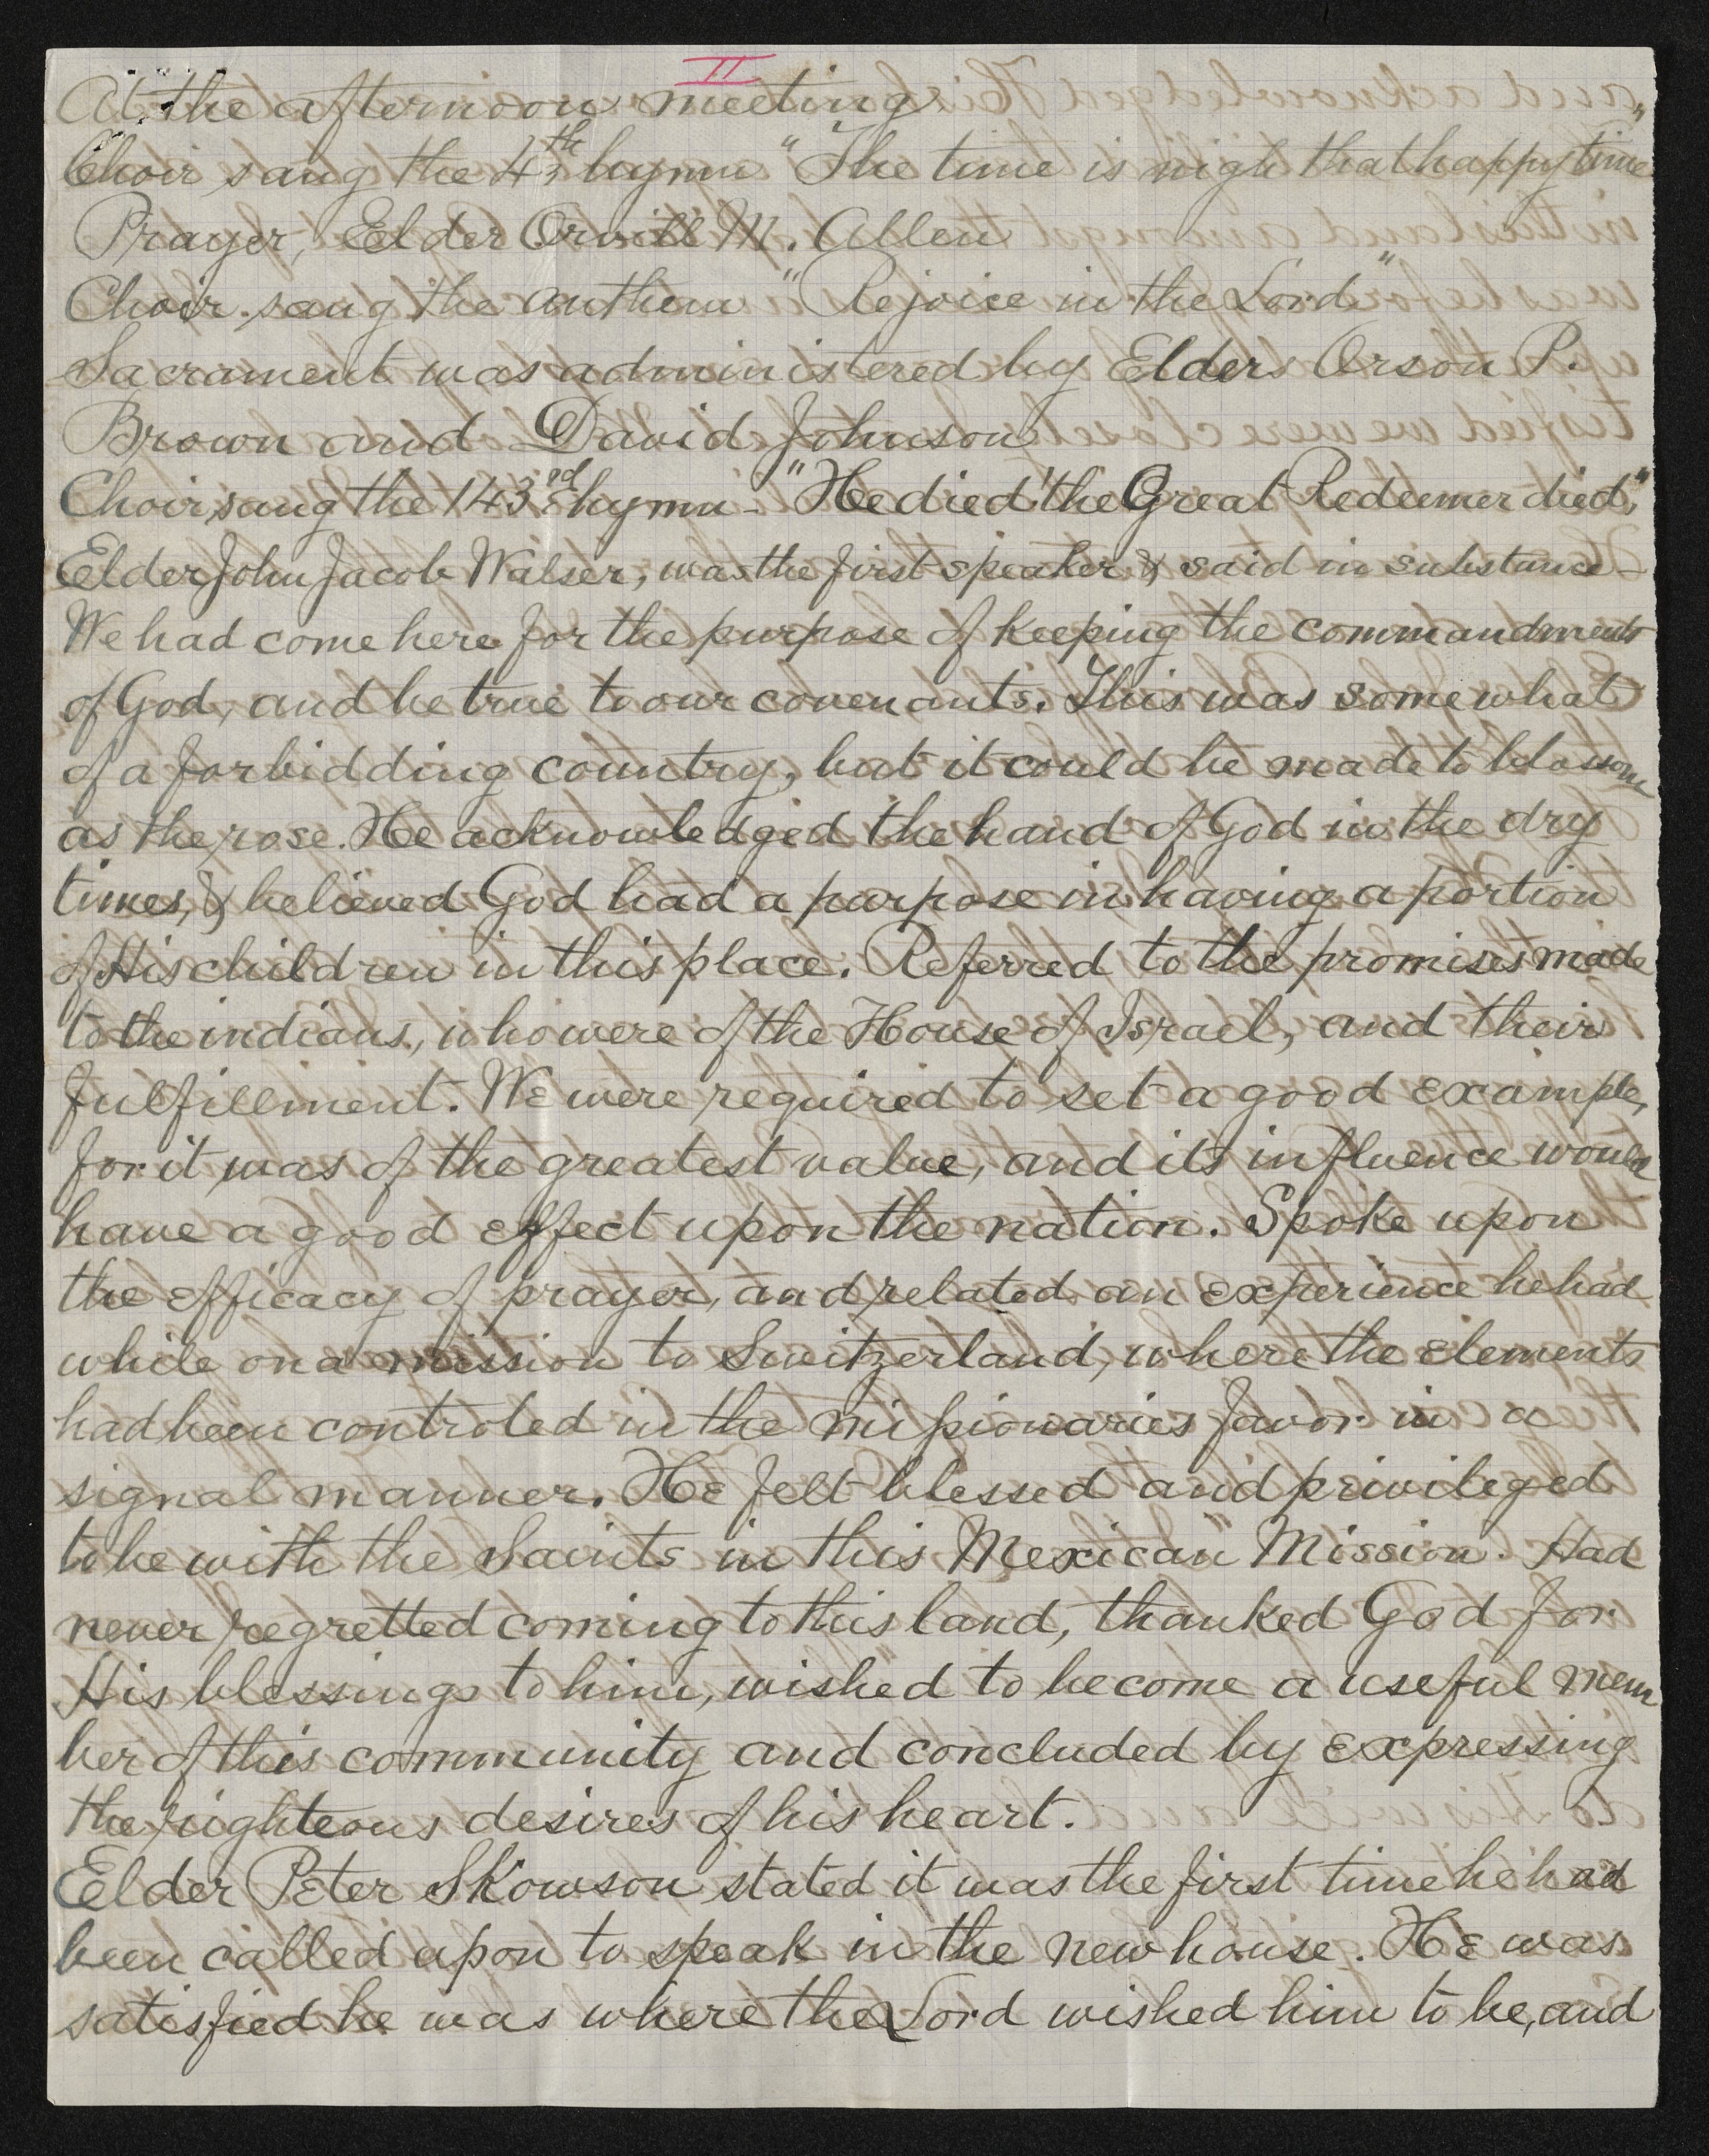 II
At the afternoon meeting.
Choir sang the 4th hymn "The time is nigh that happy time"
Prayer, Elder Orvill M. Allen
Choir sang the anthem "Rejoice in the Lord"
Sacrament was administered by Elders Orson P.
Brown and David Johnson
Choir sang the 143rd hymn - "He died! the Great Redeemer died,"
Elder John Jacob Walser, was the first speaker & said in substance -
We had come here for the purpose of keeping the commandments
of God, and be true to our covenants. This was somewhat
of a forbidding country, but it could be made to blossom
as the rose. He acknowledged the hand of God in the dry
times, & believed God had a purpose in having a portion
of His children in this place. Referred to the promises made
to the indians, who were of the House of Israel, and their
fulfillment. We were required to set a good example,
for it was of the greatest value, and its influence would
have a good effect upon the nation. Spoke upon
the efficacy of prayer, and related an experience he had
while on a mission to Switzerland, where the elements
had been controled in the missionaries favor in a
signal manner. He felt blessed and privileged
to be with the Saints in this Mexican Mission. Had
never regretted coming to this land, thanked God for
His blessings to him, wished to become a useful mem
ber of this community and concluded by expressing
the righteous desires of his heart.
Elder Peter Skowson stated it was the first time he had
been called upon to speak in the new house. He was
satisfied he was where the Lord wished him to be, and